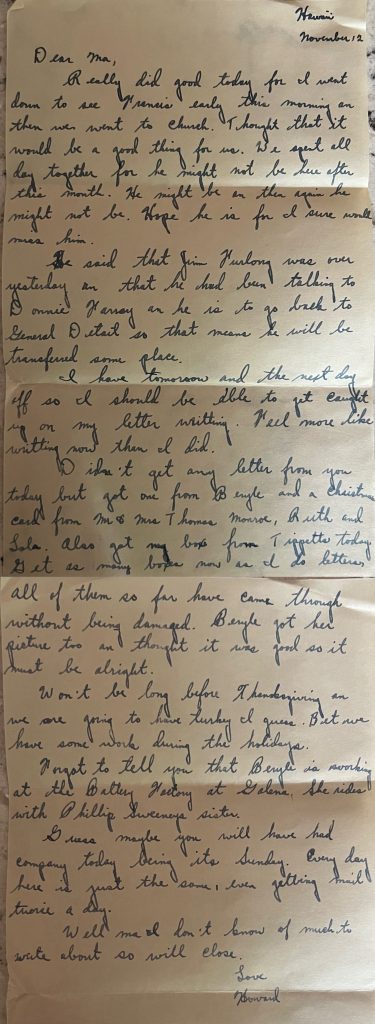 Hawaii
November, 12
Dear Ma,
Really did good today for I went
down to see Francis early this morning an
then we went to church. Thought that it
would be a good thing for us. We spent all
day together for he might not be here after
this month. He might be an then again he
might not be. Hope he is for I sure would
miss him.
He said that Jim Furlong was over
yesterday an that he had been talking to
Donnie Harray an he is to go back to
General Detail so that means he will be
transferred some place.
I have tomorrow and the next day
off so I should be able to get caught
up on my letter writting. Feel more like
writting now than I did.
Didn't get any letter from you
today but got one from Beryle and a Christmas
card from Mr & Mrs Thomas Monroe, Ruth and
Lola. Also got my box from Tippetts today.
Get as many boxes now as I do letters.
All of them so far have came through
without being damaged. Beryle got her
picture too an thought it was good so it
must be alright.
Won't be long before Thanksgiving an
we are going to have turkey I guess. Bet we
have some work during the holidays.
Forgot to tell you that Beryle is working
at the Battery Factory at Galena. She rides
with Phillip Sweeneys sister.
Guess maybe you will have had
company today being its Sunday. Every day
here is just the same, even getting mail
twice a day.
Well ma I don't know of much to
write about so will close.
Love
Howard